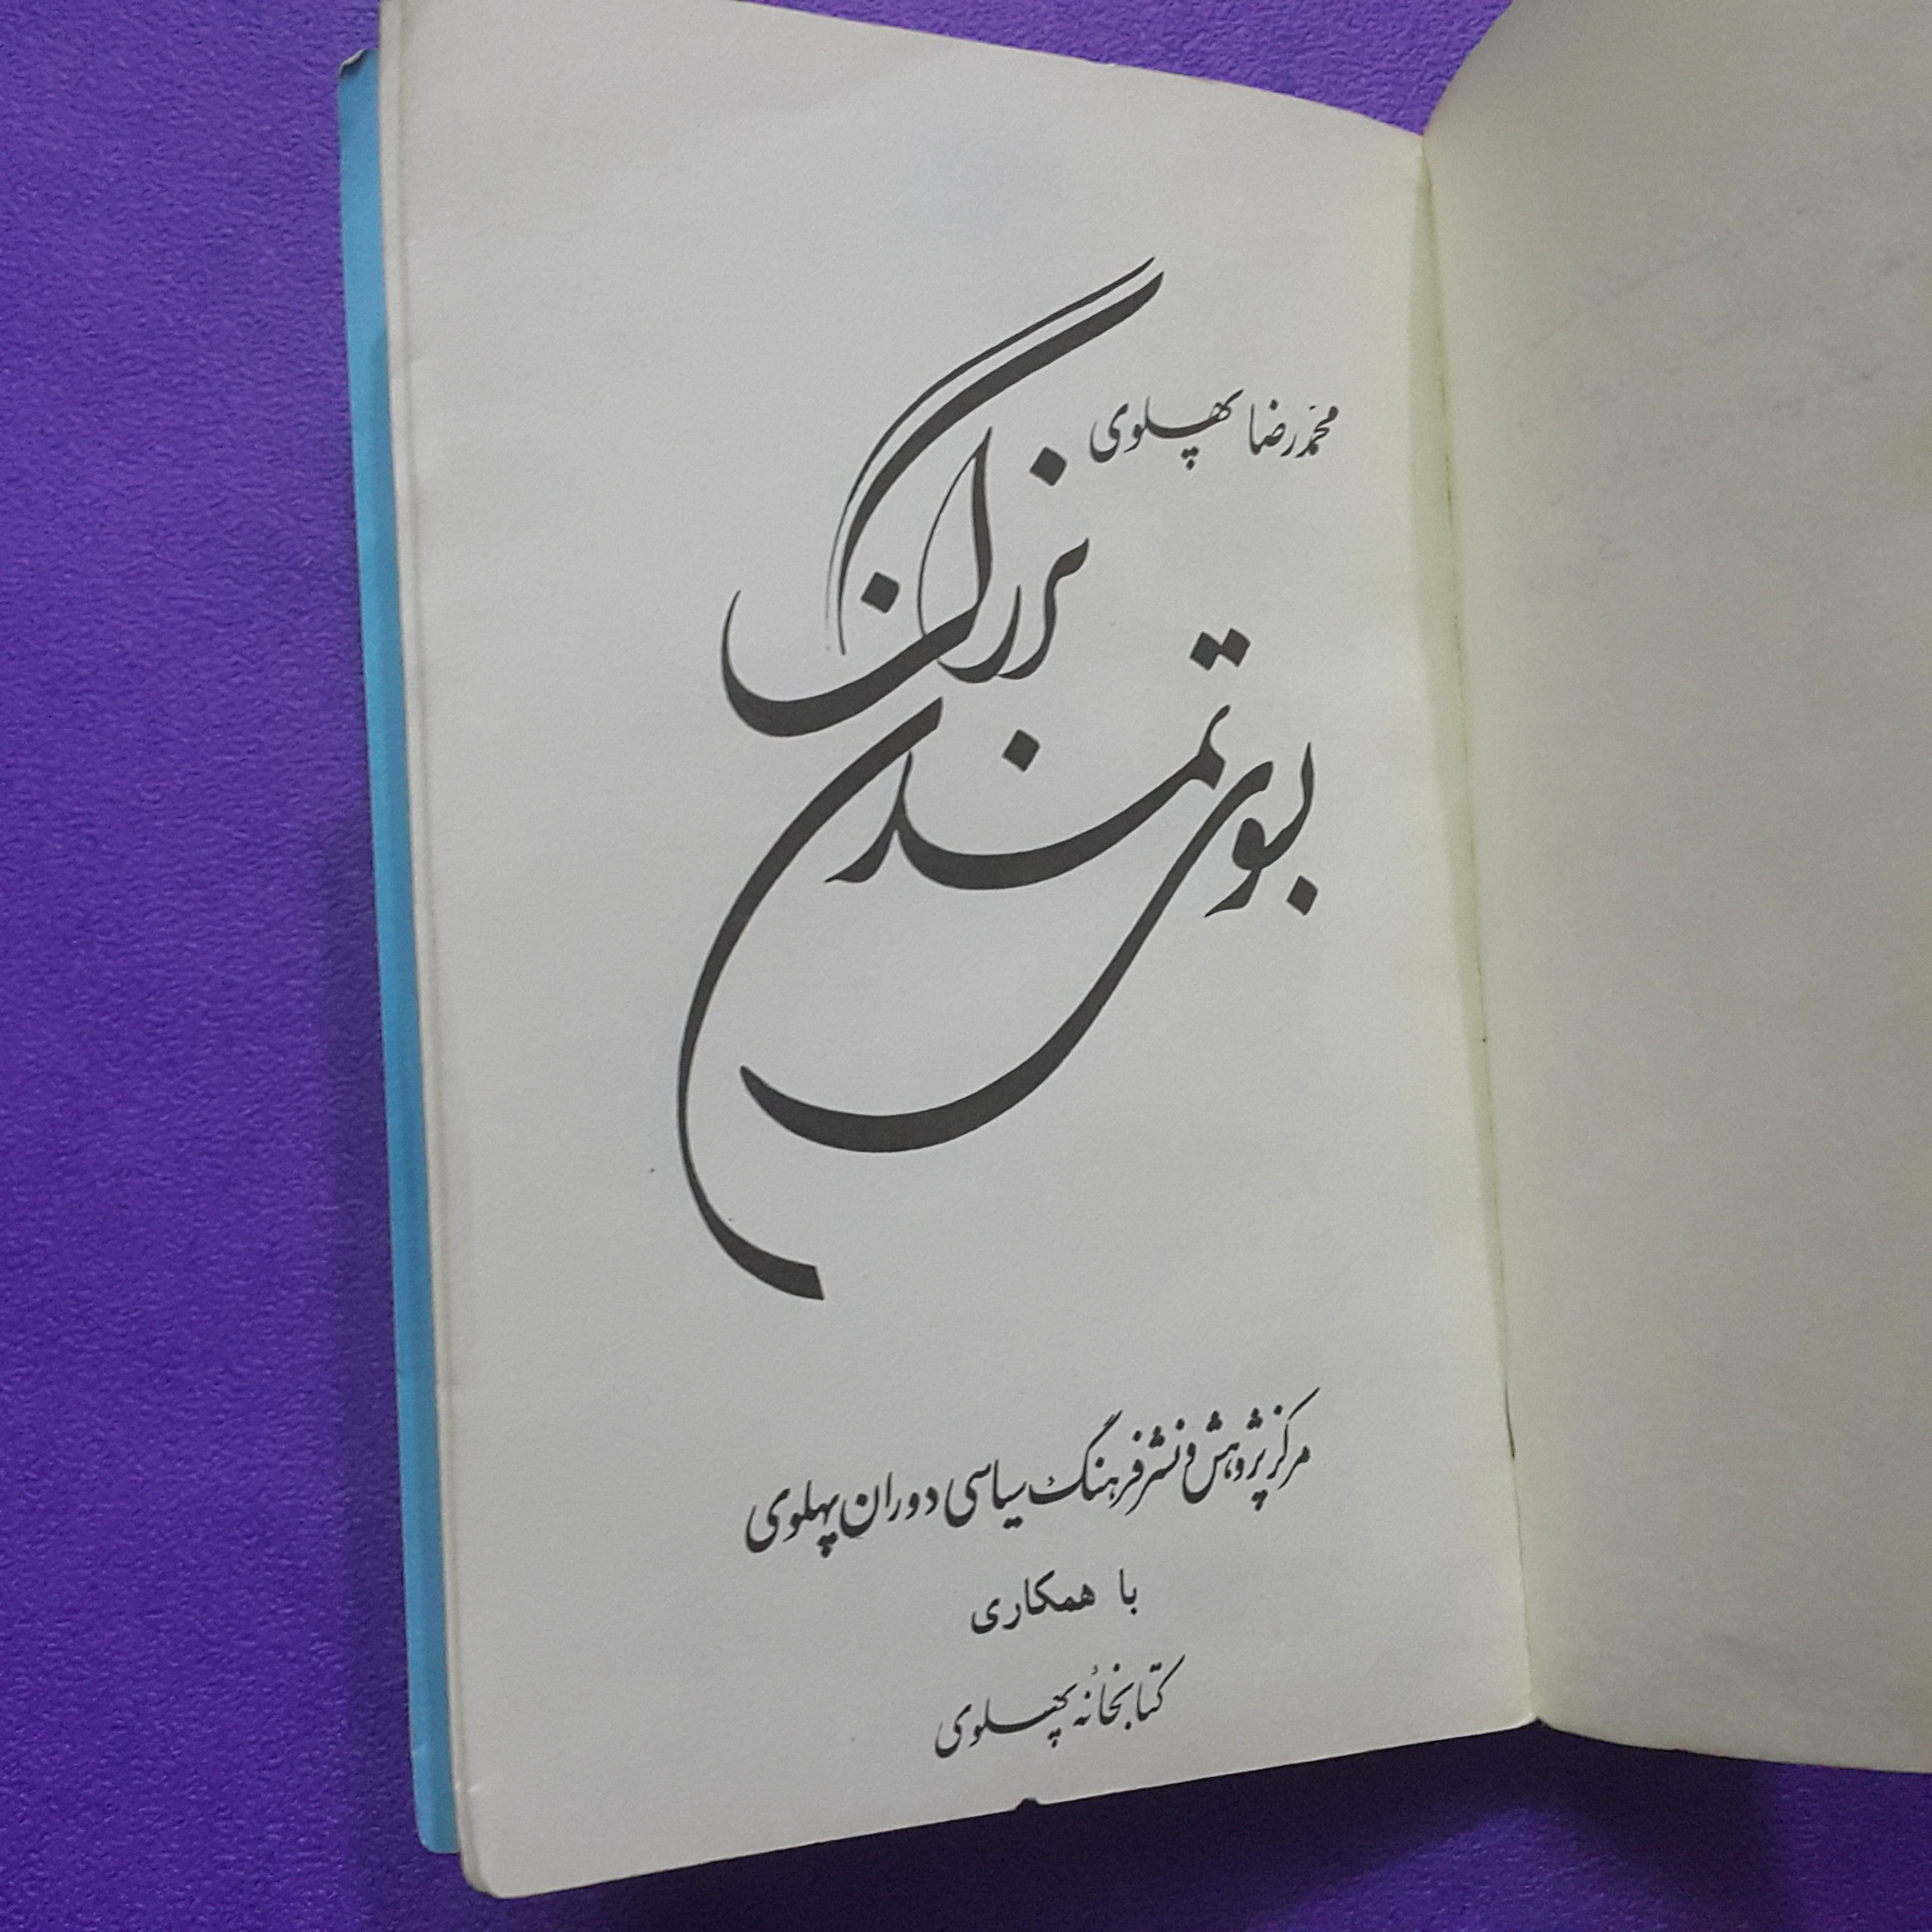 محمّدرضا پهلوی
بسوی تمدن بزرگ
مرکز پژوهش و نشر فرهنگ سیاسی دوران پهلوی
با همکاری
کتابخانهٔ پهلوی